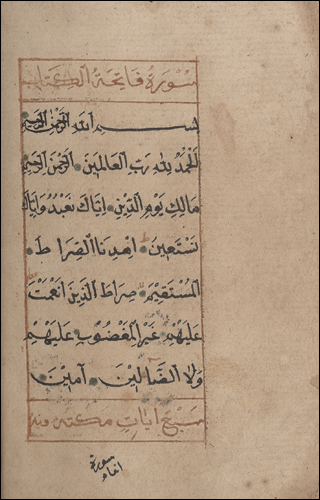 سورة فاتحة الكتاب
بسم الله الرحمن الرحيم
الحمد لله رب العالمين الرحمن الرحيم
مالك يوم الدين اياك نعبد واياك
نستعين اهدنا الصراط
المستقيم صراط الذين انعمت
عليهم غير المغضوب عليهم
ولا الضالين آمين
سبع ايات مكية
سورة